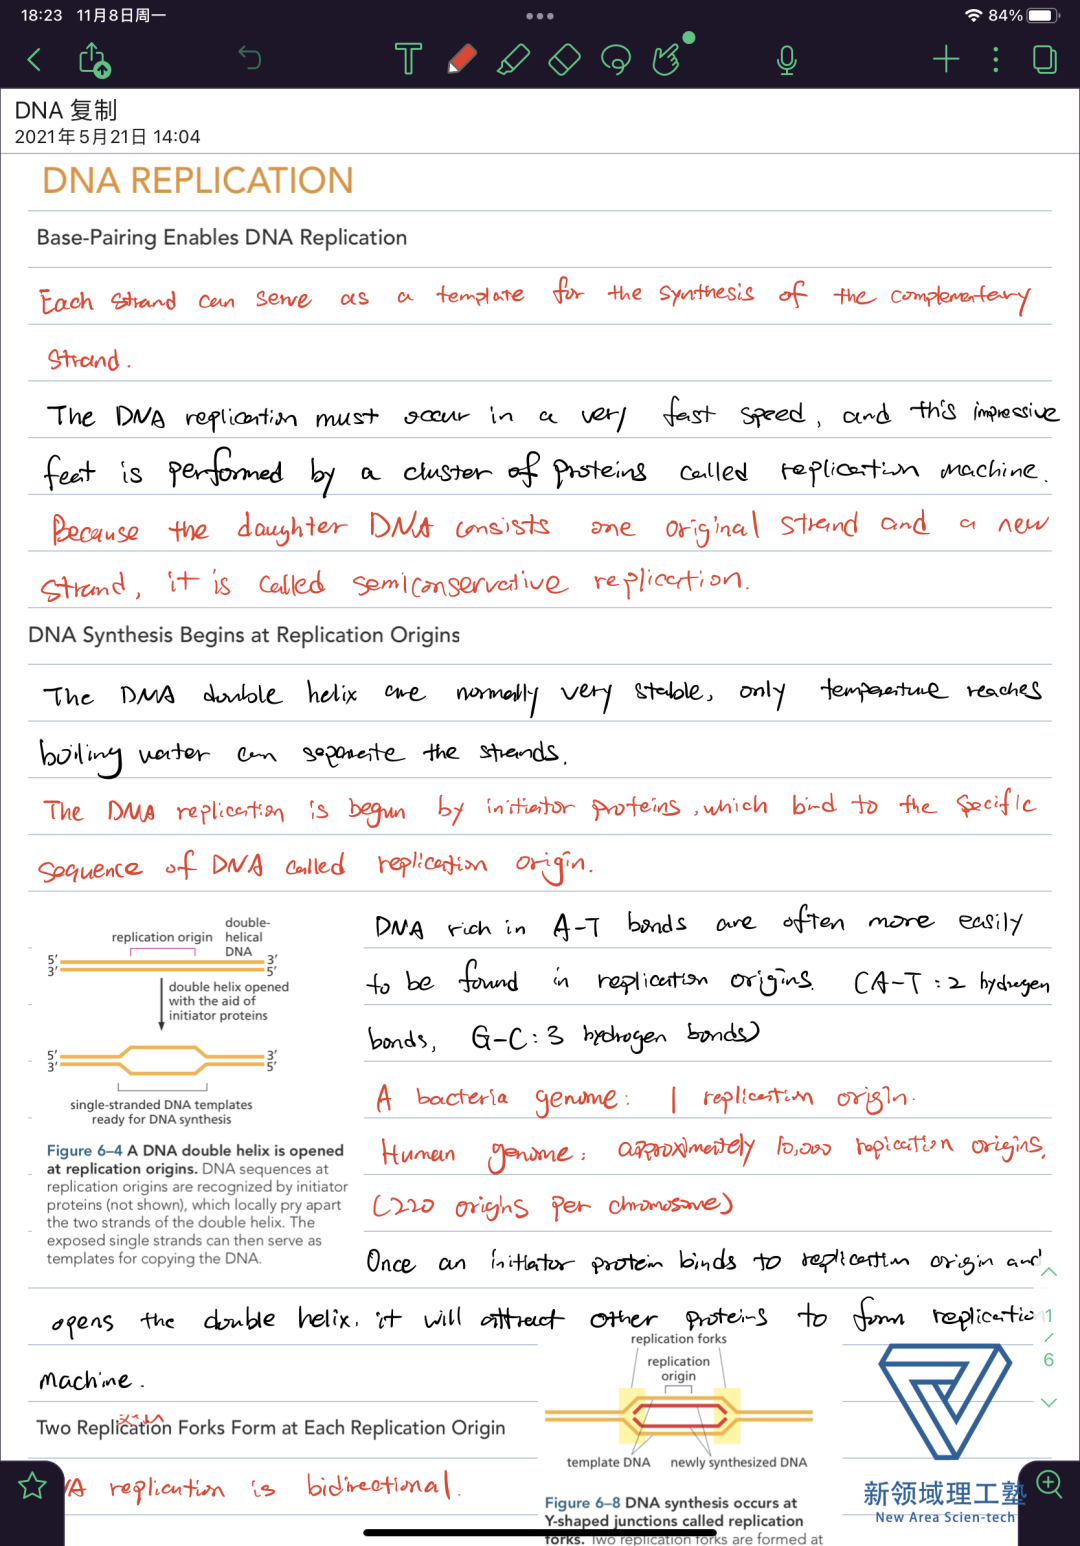 18:23 11月8日周一
84%
T
DNA 复制
2021年5月21日 14:04
DNA REPLICATION
Base-Pairing Enables DNA Replication
Each strand can serve as a template for the synthesis of the complementary
strand.
The DNA replication must occur in a very fast speed, and this impressive
feat is performed by a cluster of proteins called replication machine.
Because the daughter DNA consists one original strand and a new
strand, it is called semiconservative replication.
DNA Synthesis Begins at Replication Origins
The DNA double helix are normally very stable, only temperature reaches
boiling water can separate the strands.
The DNA replication is begun by initiator proteins, which bind to the specific
sequence of DNA called replication origin.
replication origin
double-
helical
DNA
5' 3'
3' 5'
double helix opened
with the aid of
initiator proteins
5' 3'
3' 5'
single-stranded DNA templates
ready for DNA synthesis
Figure 6–4 A DNA double helix is opened
at replication origins. DNA sequences at
replication origins are recognized by initiator
proteins (not shown), which locally pry apart
the two strands of the double helix. The
exposed single strands can then serve as
templates for copying the DNA.
DNA rich in A-T bonds are often more easily
to be found in replication origins. (A-T: 2 hydrogen
bonds, G-C: 3 hydrogen bonds)
A bacteria genome: 1 replication origin.
Human genome: approximately 10,000 replication origins.
(220 origins per chromosome)
Once an initiator protein binds to replication origin and
opens the double helix, it will attract other proteins to form replication
machine.
1
/
6
replication forks
replication
origin
template DNA newly synthesized DNA
Two Replication Forks Form at Each Replication Origin
NA replication is bidirectional.
Figure 6–8 DNA synthesis occurs at
Y-shaped junctions called replication
forks. Two replication forks are formed at
新领域理工塾
New Area Scien-tech